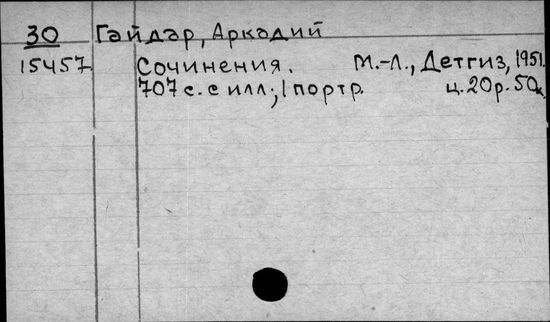 30 Гайдар, Аркадий
15457 Сочинения. М.-Л., Детгиз, 1951.
707 с. с илл.; 1 портр. ц. 20р. 50к.